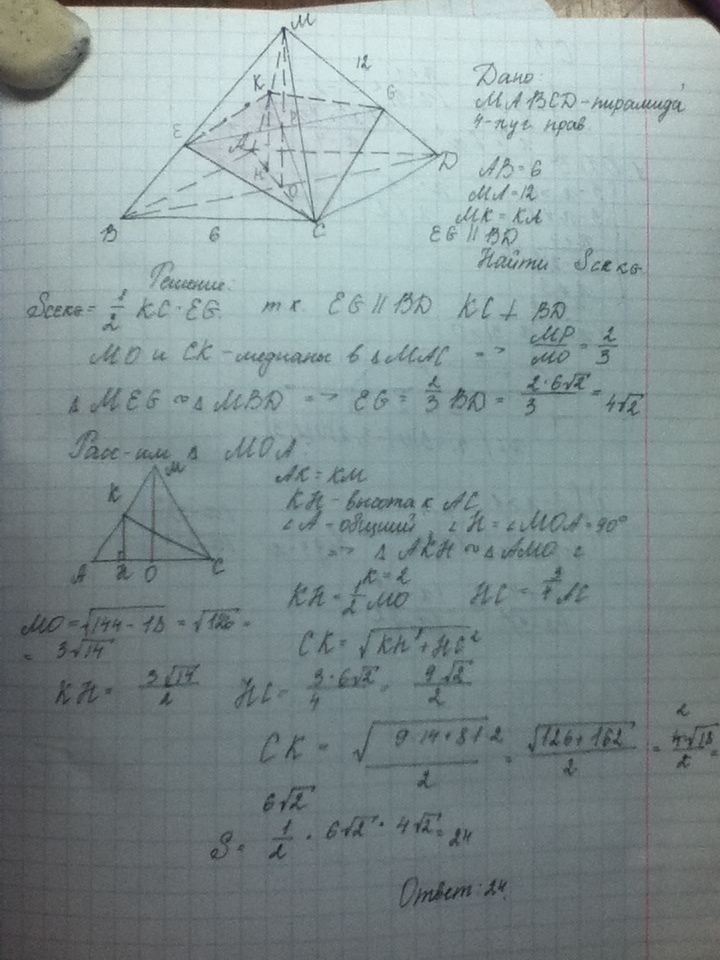 M
12
K
G
E
P
A
D
H
O
B
6
C
Дано:
MABCD-пирамида
4-пуг прав.
AB=6
MA=12
MK=KA
EG || BD
Найти Sсекк
Решение:
Sсекк= 1/2 KC · EG. т.к. EG || BD KC ⊥ BD
MO и CK - медианы в △MAC => MP/MO = 2/3
△MEG ~ △MBD => EG = 2/3 BD = 2·6√2/3 = 4√2
Расс-им △ MOA.
M
K
A
H
O
C
AK = KM
KH - высота к AC
∠A - общий ∠H = ∠MOA = 90°
=> △AKH ~ △AMO с
k = 2
KH = 1/2 MO HC = 3/4 AC
MO = √144-18 = √126 =
= 3√14
CK = √KH²+HC²
KH = 3√14/2 HC = 3·6√2/4 = 9√2/2
CK = √9·14+81·2/2 = √126+162/2 = 4√18/2 =
2
6√2
S = 1/2 · 6√2 · 4√2 = 24
Ответ: 24.